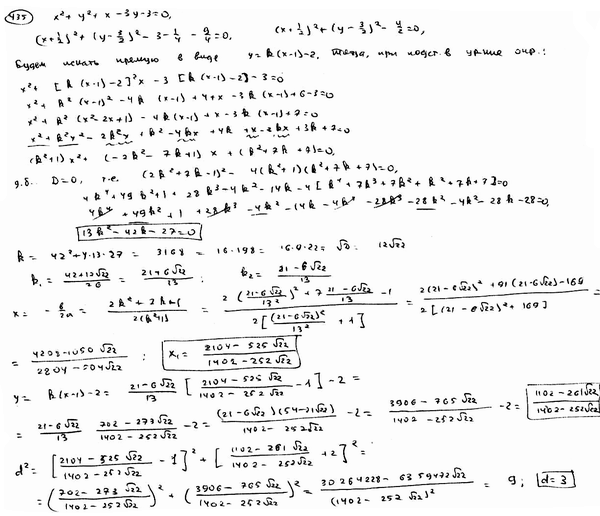 435 x² + y² + x - 3y - 3 = 0,
(x + 1/2)² + (y - 3/2)² - 3 - 1/4 - 9/4 = 0, (x + 1/2)² + (y - 3/2)² - 
Будем искать прямую в виде y = k(x-1) - 2, тогда, при подст. в ур-ние окр.:
x² + [k(x-1) - 2]² x - 3[k(x-1) - 2] - 3 = 0
x² + k²(x-1)² - 4k(x-1) + 4 + x - 3k(x-1) + 6 - 3 = 0
x² + k²(x² - 2x + 1) - 4k(x-1) + x - 3k(x-1) + 7 = 0
x² + k²x² - 2k²x + k² - 4kx + 4k + x - 3kx + 3k + 7 = 0
(k²+1)x² + (-2k² - 7k + 1)x + (k² + 7k + 7) = 0
D = 0, т.е. (2k² + 7k - 1)² - 4(k²+1)(k² + 7k + 7) = 0,
4k⁴ + 49k² + 1 + 28k³ - 4k² - 14k - 4[k⁴ + 7k³ + 7k² + k² + 7k + 7] = 0
4k⁴ + 49k² + 1 + 28k³ - 4k² - 14k - 4k⁴ - 28k³ - 28k² - 4k² - 28k - 28 = 0,
13k² - 42k - 27 = 0
= 42² + 4·13·27 = 3168 = 16·198 = 16·9·22 = √D = 12√22
k₁ = (42+12√22)/26 = (21+6√22)/13; k₂ = (21-6√22)/13
x = -b/2a = (2k² + 7k - 1)/(2(k²+1)) = (2((21-6√22)²/13²) + 7 (21-6√22)/13 - 1)/(2[(21-6√22)²/13² + 1]) = (2(21-6√22)² + 91(21-6√22) - 169)/(2[(21-6√22)² + 169]) =
= (4208-1050√22)/(2804-504√22); x₁ = (2104-525√22)/(1402-252√22)
y = k(x-1) - 2 = (21-6√22)/13 [(2104-525√22)/(1402-252√22) - 1] - 2 =
= (21-6√22)/13 · (702-273√22)/(1402-252√22) - 2 = (21-6√22)(54-21√22)/(1402-252√22) - 2 = (3906-765√22)/(1402-252√22) - 2 = (1102-261√22)/(1402-252√22)
d² = [(2104-525√22)/(1402-252√22) - 1]² + [(1102-261√22)/(1402-252√22) + 2]² =
= ((702-273√22)/(1402-252√22))² + ((3906-765√22)/(1402-252√22))² = (30264228-6359472√22)/(1402-252√22)² = 9; d = 3